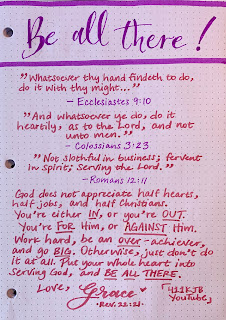 Be all there!
"Whatsoever thy hand findeth to do,
do it with thy might..."
- Ecclesiastes 9:10
"And whatsoever ye do, do it
heartily, as to the Lord, and not
unto men."
- Colossians 3:23
"Not slothful in business; fervent
in Spirit; serving the Lord."
- Romans 12:11
God does not appreciate half hearts,
half jobs, and half Christians.
You're either IN, or you're OUT.
You're FOR Him, or AGAINST Him.
Work hard, be an over-achiever,
and go BIG. Otherwise, just don't do
it at all. Put your whole heart into
serving God, and BE ALL THERE.
Love, Grace
• Rev. 22:21 •
411KJB
YouTube